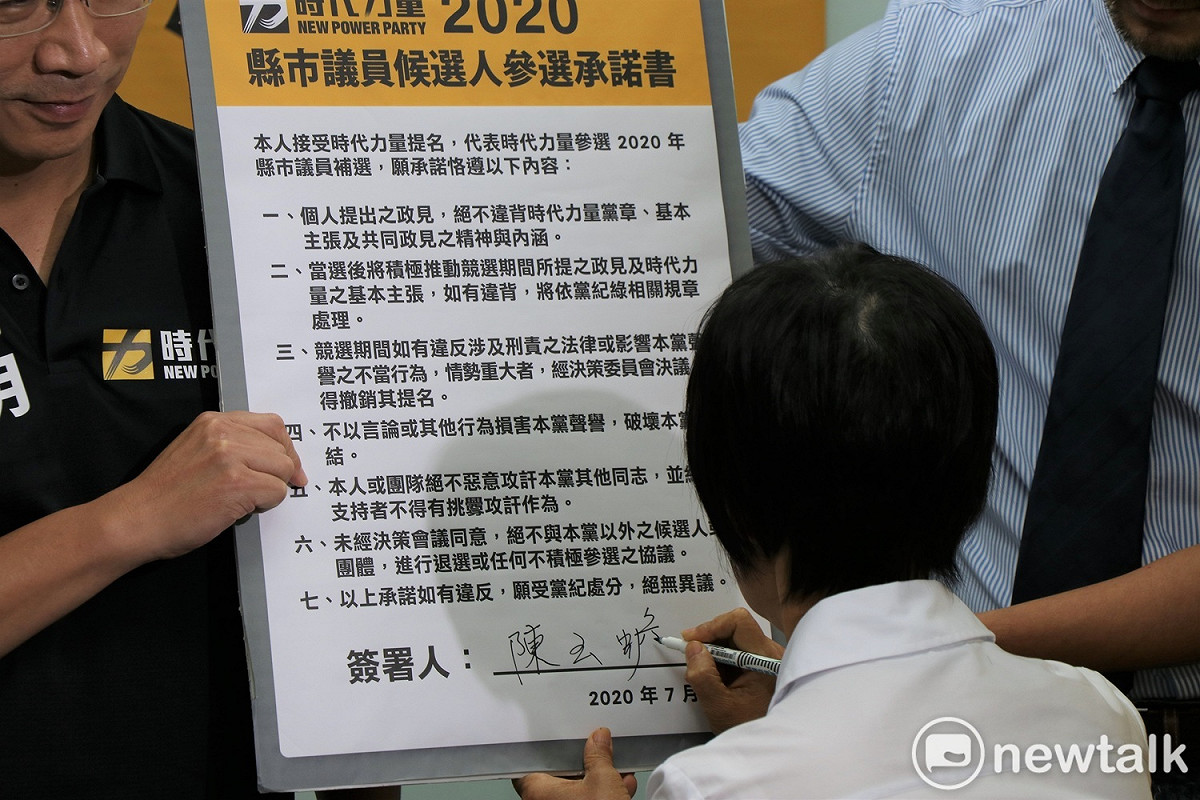 時代力量 2020
NEW POWER PARTY
縣市議員候選人參選承諾書
本人接受時代力量提名，代表時代力量參選 2020 年
縣市議員補選，願承諾恪遵以下內容：
一、個人提出之政見，絕不違背時代力量黨章、基本
主張及共同政見之精神與內涵。
二、當選後將積極推動競選期間所提之政見及時代力
量之基本主張，如有違背，將依黨紀綠相關規章
處理。
三、競選期間如有違反涉及刑責之法律或影響本黨聲
譽之不當行為，情勢重大者，經決策委員會決議
得撤銷其提名。
四、不以言論或其他行為損害本黨聲譽，破壞本黨
結。
五、本人或團隊絕不惡意攻訐本黨其他同志，並
支持者不得有挑釁攻訐作為。
六、未經決策會議同意，絕不與本黨以外之候選人
團體，進行退選或任何不積極參選之協議。
七、以上承諾如有違反，願受黨紀處分，絕無異議。
簽署人：陳玉
2020 年 7 月
時代
NEW PO
月
newtalk